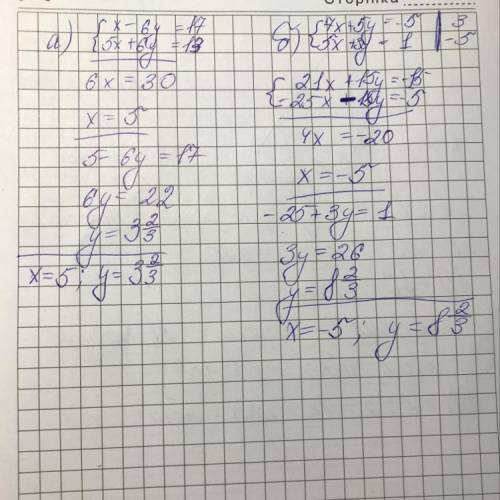 Сторінка
а) { x - 6y = 17
5x + 6y = 13
6x = 30
x = 5
5 - 6y = 17
6y = 22
y = 3 2/3
x = 5 ; y = 3 2/3
б) { 7x + 5y = -5 | 3
5x + 3y = 1 | -5
{ 21x + 15y = -15
-25x - 15y = -5
4x = -20
x = -5
-25 + 3y = 1
3y = 26
y = 8 2/3
x = -5 ; y = 8 2/3